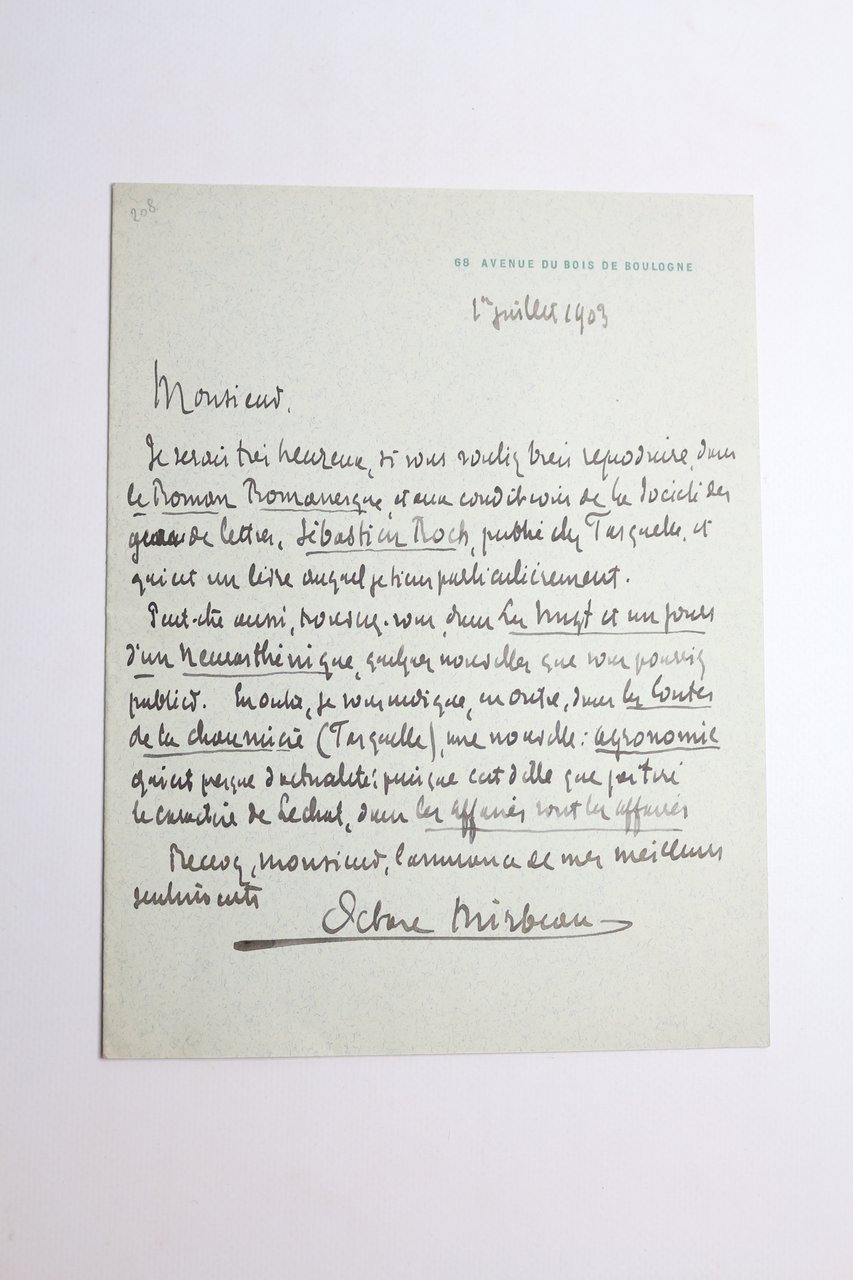 208
68 AVENUE DU BOIS DE BOULOGNE
1er juillet 1903
Monsieur,
Je serais très heureux, si vous vouliez bien reproduire, dans
le Roman Romanesque, et aux conditions de la Société des
gens de lettres, Sébastien Roch, publié chez Fasquelle, et
qui est un livre auquel je tiens particulièrement.
Peut-être aussi, trouverez-vous, dans Les Vingt et un jours
d'un neurasthénique, quelques nouvelles que vous pourriez
publier. En outre, je vous indique, en outre, dans les Contes
de la chaumière (Fasquelle), une nouvelle : agronomie
qui est presque d'actualité, puisque c'est d'elle que j'ai tiré
le caractère de Lechat, dans les affaires sont les affaires
Recevez, monsieur, l'assurance de mes meilleurs
sentiments
Octave Mirbeau